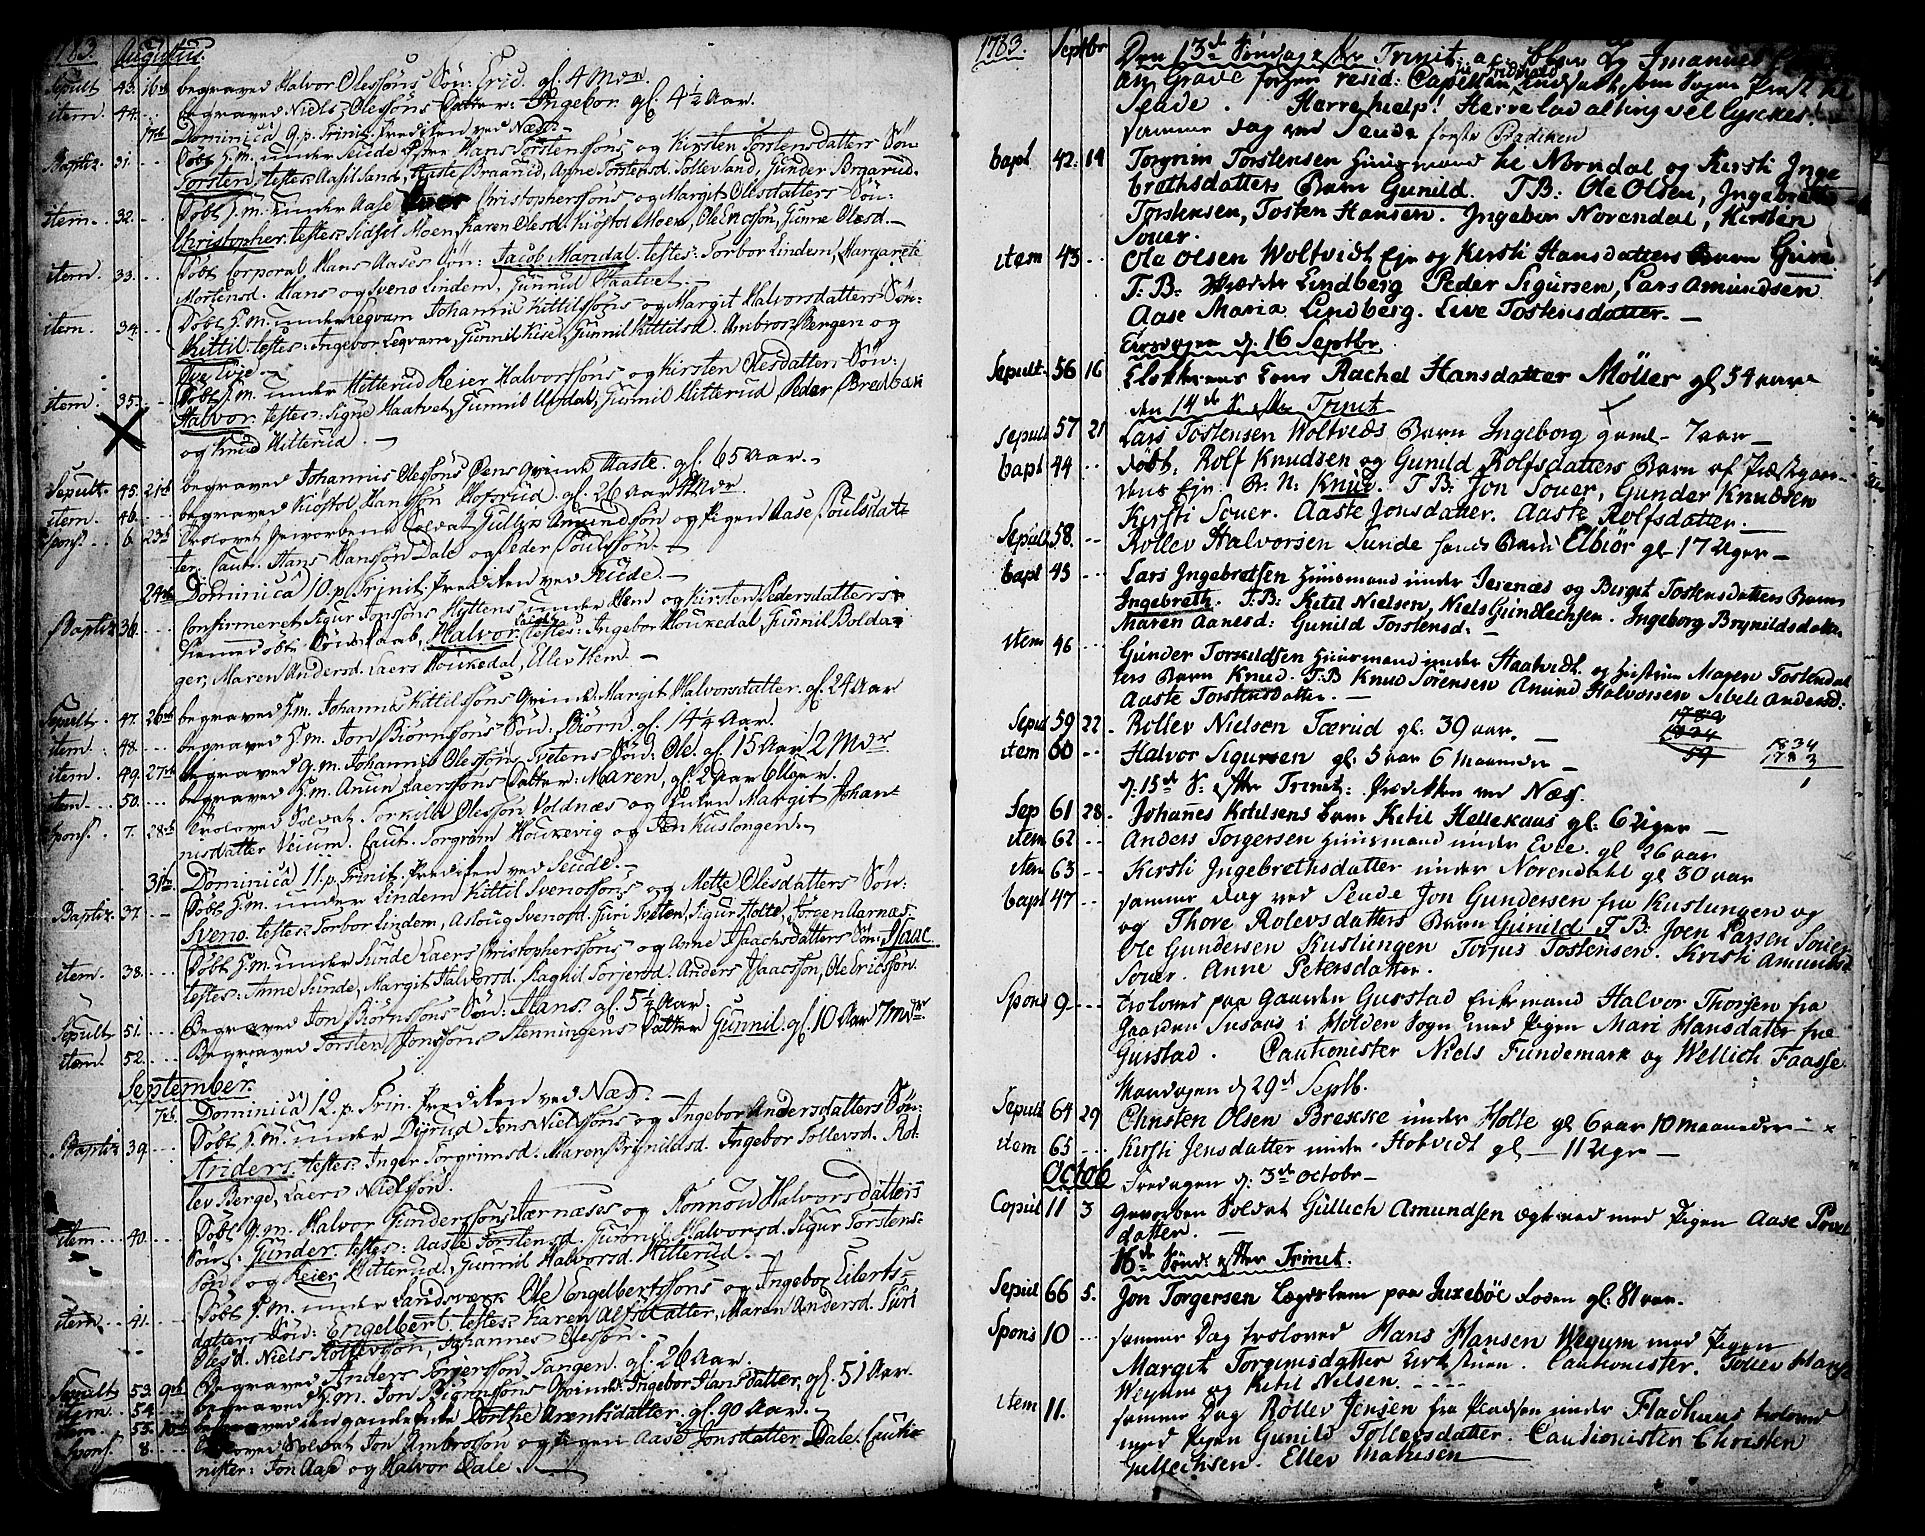 1783. Augustus.
Sepult 43. 16de begraved Halvor Olessöns Sön: Erid. gl. 4 Mdr.
item. 44. begraved Niels Olessöns Datter: Ingebor gl. 4½ Aar.
17de Dominica 9. p. Trinit. Prediken ved Næs.
Baptiz 31. Döbt H.m. under Seüde Hans Torstenssöns og Kirsten Torstensdatters Sön
Torsten, testes: Aasil Sand, Aaste Braarud, Anne Torstensd. Tollevsland, Gunder Brgarud.
item. 32. Döbt H.m. under Aase Christophersöns og Margit Olesdatters Sön:
Christopher. testes: Sidsil Moen, Karen Olesd. Kiöstol Moen, Ole Ericssön, Gunne Olesd.
item. 33. Döbt Corporal Hans Aases Sön: Jacob Mandal. testes: Torbor Lindem, Margarete
Mortensd. Hans og Sveno Lindem, Gunnild Haatvet.
item. 34. Döbt H.m. under Legvam Johannis Kittilssöns og Margit Halvorsdatters Sön:
Kittil. testes: Ingebor Legvam, Gunnil Kise, Gunnil Kittilsd. Ambros Bergen og
Ove Evje
item. 35. Döbt H.m. under Hitterud Reier Halvorssöns og Kirsten Olesdatters Sön:
Halvor. testes: Signe Haatvet, Gunnil Aasdal, Gunnil Hitterud Peder Bredbæn
og Knud Hitterud.
Sepult. 45. 21de begraved Johannis Olessöns Qvinde Aaste. gl. 65 Aar.
item. 46. begraved Kiöstol Hanssön Hofsrud. gl. 26 Aar Mdr.
Spons. 6. 23de Trolovet Gevorbene Soldat Gullik Amundssön og Pigen Aase Poulsdat
ter. Caut. Hans Hansön Dale og Peder Poulssön.
24de Dominica 10. p. Trinit. Prediken ved Seüde.
Baptiz 36. Confirmeret Sigur Jonssöns Hyttens under Hem og Kirsten Pedersdatters
hiemedöbt Sön Daab, Halvor testes: Ingebor Houkedal, Gunnil Bolda
ger, Maren Andersd. Laers Houkedal, Ellev Hem.
Sepult. 47. 26de begraved H.m. Johannis Kittilssöns Qvinde: Margit Halvorsdatter. gl. 24 Aar
item. 48. begraved H.m. Jon Biörnssöns Sön: Biörn. gl. 14½ Aar.
item. 49. 27de begraved g.m. Johannis Olessöns Tvetens Sön: Ole. gl. 15 Aar 2 Mdr
item. 50. begraved H.m. Anun Laerssöns Datter: Maren, gl. 2 Aar 6 Uger.
Spons. 7. 28de Troloved Soldat Torkild Olessön Voldnæs og Pigen Margit Johan
nisdatter Veium. Caut. Torgrim Houkevig og Jon Kuslongen.
31te Dominica 11. p. Trinit. Prediken ved Seüde.
Baptiz. 37. Döbt H.m. under Lindem Kittil Svenossöns og Mette Olesdatters Sön:
Sveno. testes: Torbor Lindem, Asloug Svenosd. Guri Tveten, Sigur Holte, Jörgen Aarnæs.
item. 38. Döbt H.m. under Sunde Laers Christophersöns og Anne Isaachsdatters Sön: Isaac
testes: Anne Sunde, Margit Halvorsd. Ragnil Torjersd. Anders Isaacssön, Ole Ericssön.
Sepult 51. Begraved Jon Biörnssöns Sön: Hans. gl. 5½ Aar.
item. 52. Begraved Torsten Jonssöns Stenningens Datter Gunnil. gl. 10 Aar 7 mdr.
September.
7de Dominica 12. p. Trin. Prediken ved Næs.
Baptiz 39. Döbt H.m. under Dyrud Jens Nielssöns og Ingebor Andersdatters Sön:
Anders. testes: Inger Torgrimsd. Maren Brynildsd. Ingebor Tollevsd. Rol
lev Berge, Laers Nielssön.
item. 40. Döbt g.m. Halvor Gunderssöns Aarnæses og Rönnow Halvorsdatters
Sön: Gunder. testes: Aaste Torstensd. Gunnil Halvorsd. Sigur Torstens
sön og Reier Hitterud, Gunnil Halvorsd. Hitterud.
item. 41. Döbt H.m. under Landsværk Ole Engelbertssöns og Ingebor Eilerts
datters Sön: Engelbert. testes: Karen Alfsdatter, Maren Andersd. Guri
Olesd. Niels Rollevssön, Johannes Olessön.
Sepult 53. 9de Begraved Anders Torjerssön Tangen. gl. 26 Aar.
item. 54. begraved H.m. Jon Biörnssöns Qvinde: Ingebor Hansdatter, gl. 51 Aar.
item. 55. 10de begraved Enke Dorthe Arentsdatter. gl. 90 Aar.
Spons. 8. Troloved Soldat Jon Ambrossön og Pigen Aase Jonsdatter Dale. Cautio
nister: Jon Aase og Halvor Dale.
1783. Septbr Den 13de Söndag efter Trinit. blev Hr Imanuel
an Grave forhen resid. Capellan indsadt som Sogne Præst til
Seude. Herre hielp! Herre lad alting vel lyckes!
samme dag ved Seude förste Prædiken
bapt 42. 14 Torgrim Torstensen Huusmand til Norndal og Kirsti Inge
brethsdatters Barn Gunild. T B: Ole Olsen, Ingebreth
Torstensen, Tosten Hansen. Ingebor Norendal, Kirsten
Souer.
item 43 Ole Olsen Woltvidt Eje og Kirsti Hansdatters Barn Guri
T. B: Lindberg Peder Sigursen, Lars Amundsen
Aase Maria Lindberg. Live Tostensdatter.
Tirsdagen d. 16 Septbr
Sepult. 56 16 Klokkerens Kone Rachel Hansdatter Möller gl 54 aar
den 14de S. efter Trinit
Sepult 57 21 Lars Tostensen Woltvids Barn Ingeborg gaml 7 aar
bapt 44 döbt: Rolf Knudsen og Gunild Rolfsdatters Barn af Præstgaar
dens Eje. B. N: Knud. T B: Jon Souer, Gunder Knudsen
Kirsti Souer. Aaste Jonsdatter. Aaste Rolfsdatter.
Sepult 58. Rollev Halvorsen Sunde hans Barn Elbiör gl 17 Uger
bapt 45 Lars Ingebretsen Huusmand under Jesenæs og Birgit Tostensdatters Barn
Ingebreth. T. B: Ketil Nielsen, Niels Gundlechsen. Ingeborg Brynildsdatter
Maren Aanesd: Gunild Torstensd:
item 46 Gunder Torkildsen Huusmand under Haatvidt og Hustrue Maren Tostensdat
ters Barn Knud. T. B Knud Sörensen Anund Halvorsen Sibele Andersd.
Aaste Torstensdatter.
Sepult 59 22 Rollev Nielsen Tærud gl: 39 aar.
item 60 Halvor Sigursen gl: 5 aar 6 maaneder
1834
1783
1
d. 15de S: efter Trinit: Prædiken ved Næs.
Sep 61 28 Johanes Ketelsens barn Ketil Hellekaas gl: 6 Uger
item 62 Anders Torgersen Huusmand under Evie. gl 26 aar
item 63 Kirsti Ingebrethsdatter under Norendahl gl 30 aar
bapt 47 samme dag ved Seude Jon Gundersen fra Kuslungen og
og Thore Rolevsdatters Barn Gunild T. B: Joen Larsen Souer
Ole Gundersen Kuslungen Torjus Tostensen. Kirsti Amundsd
Souer. Anne Petersdatter.
Spons 9 troloved paa Gaarden Gurstad Enkemand Halvor Thorsen fra
Gaarden Susaas i Holden Sogn med Pigen Mari Hansdatter fra
Gurstad. Cautionister Niels Fundemark og Wellich Faasse.
Mandagen d 29de Septb.
Sepult 64 29 Christen Olsen Brekke under Holte gl 6 aar 10 maaneder
item 65 Kirsti Jensdatter under Hotvidt gl 11 Uger
Octob Fredagen d: 3de Octobr
Copul 11 3 Gevorben Soldat Gullich Amundsen ægtvied med Pigen Aase Povel
datter.
16de Sönd: efter Trinit.
Sepult 66 5. Jon Torgersen Lægdslem paa Juxeböe Roden gl: 81 aar.
Spons 10 samme Dag troloved Hans Hansen Wegum med Pigen
Margit Torgrimsdatter Kirkestuen. Cautionister. Tollev Hans
Wegum og Ketil Nilsen.
item 11. samme Dag Rollev Jensen fra Pladsen under Fladhuus troloved
med Pigen Gunild Tollevsdatter. Cautionister Christen
Gullechsen. Ellev Mathisen